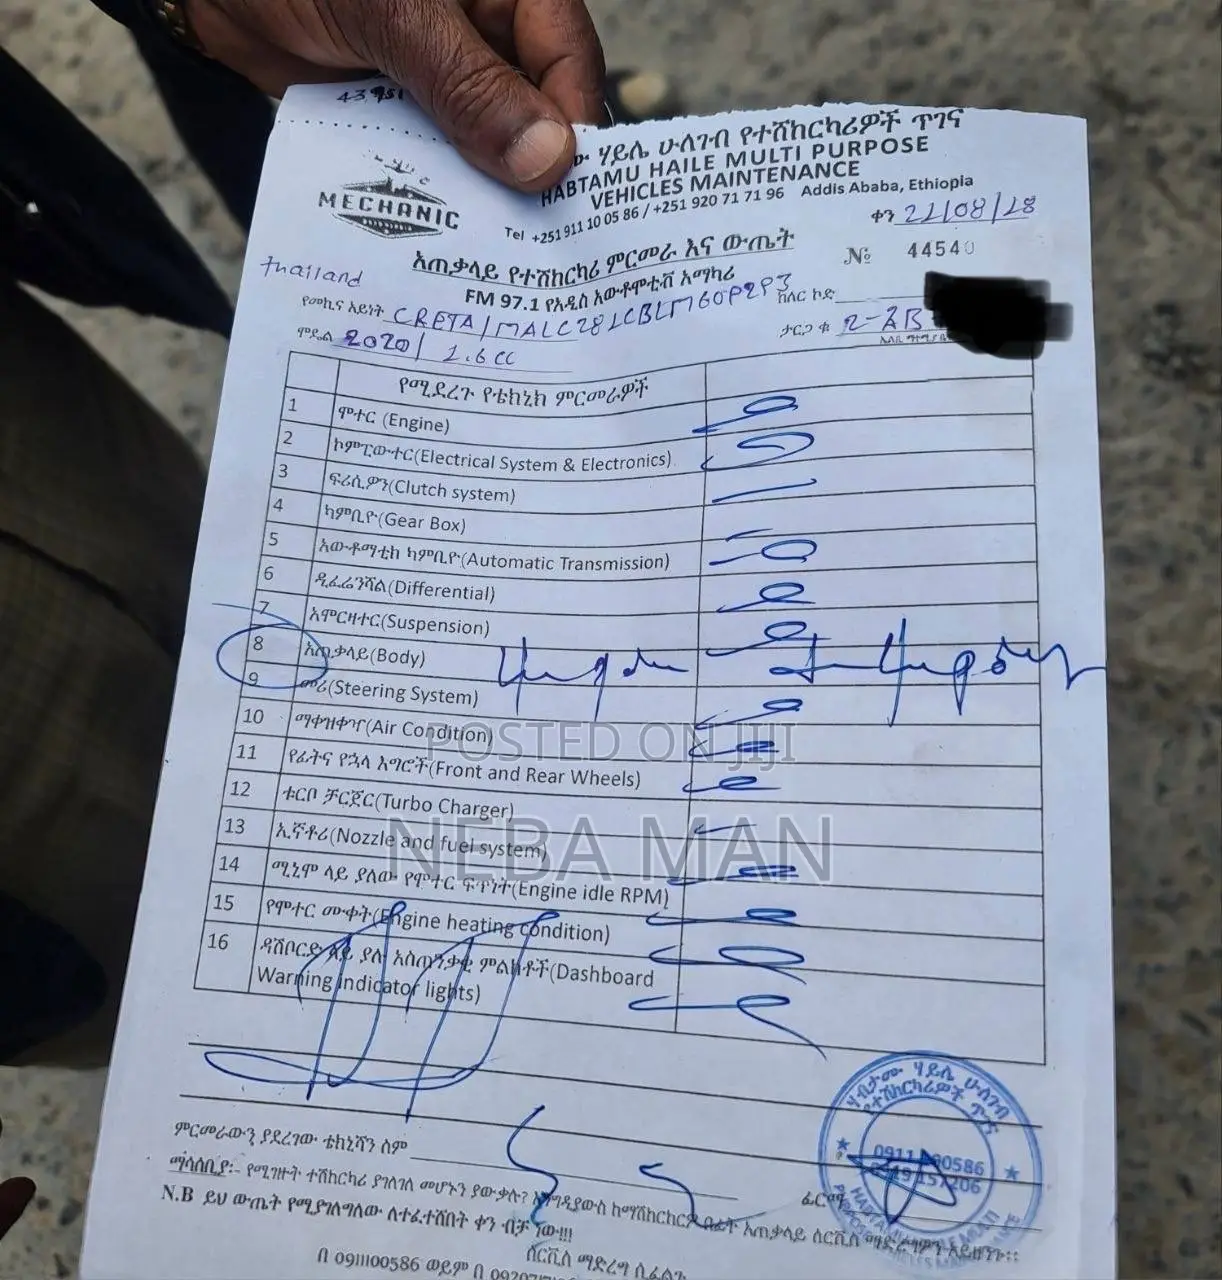 43,951
ሃይሌ ሁለገብ የተሽከርካሪዎች ጥገና
HABTAMU HAILE MULTI PURPOSE
VEHICLES MAINTENANCE
MECHANIC
Tel +251 911 10 05 86 / +251 920 71 71 96 Addis Ababa, Ethiopia
ቀን 22/08/28
አጠቃላይ የተሽከርካሪ ምርመራ እና ውጤት
№ 44540
FM 97.1 የአዲስ አውቶሞቲቭ አማካሪ
thailand
የመኪና አይነት CRETA/MALC281CBLM60P2P3
ሽለር ኮድ
ሞዴል 2020/ 1.6cc
ታርጋ ቁ 2-AB
የሚደረጉ የቴክኒክ ምርመራዎች
1 ሞተር (Engine)
2 ኮምፒውተር(Electrical System & Electronics)
3 ፍሪሲዎን(Clutch system)
4 ካምቢዮ(Gear Box)
5 አውቶማቲክ ካምቢዮ(Automatic Transmission)
6 ዲፈሬንሻል(Differential)
7 አሞርዛተር(Suspension)
8 አጠቃላይ(Body)
9 መሪ(Steering System)
10 ማቀዝቀዣ(Air Condition)
11 የፊትና የኋላ እግሮች(Front and Rear Wheels)
12 ቱርቦ ቻርጀር(Turbo Charger)
13 ኢኛቶሪ(Nozzle and fuel system)
14 ሚኒሞ ላይ ያለው የሞተር ፍጥነት(Engine idle RPM)
15 የሞተር ሙቀት(Engine heating condition)
16 ዳሽቦርድ ላይ ያሉ አስጠንቃቂ ምልክቶች(Dashboard
Warning indicator lights)
POSTED ON JIJI
NEBA MAN
ምርመራውን ያደረገው ቴክኒሻን ስም
ፊርማ
ማሳሰቢያ:- የሚገዙት ተሽከርካሪ ያገለገለ መሆኑን ያውቃሉ?
N.B ይህ ውጤት የሚያገለግለው ለተፈተሸበት ቀን ብቻ ነው!!!
ሰርቪስ ማድረግ ሲፈልጉ
በ 0911100586 ወይም በ
ሃብታሙ ሃይሌ ሁለገብ
የተሽከርካሪዎች ጥገና
0911 100586